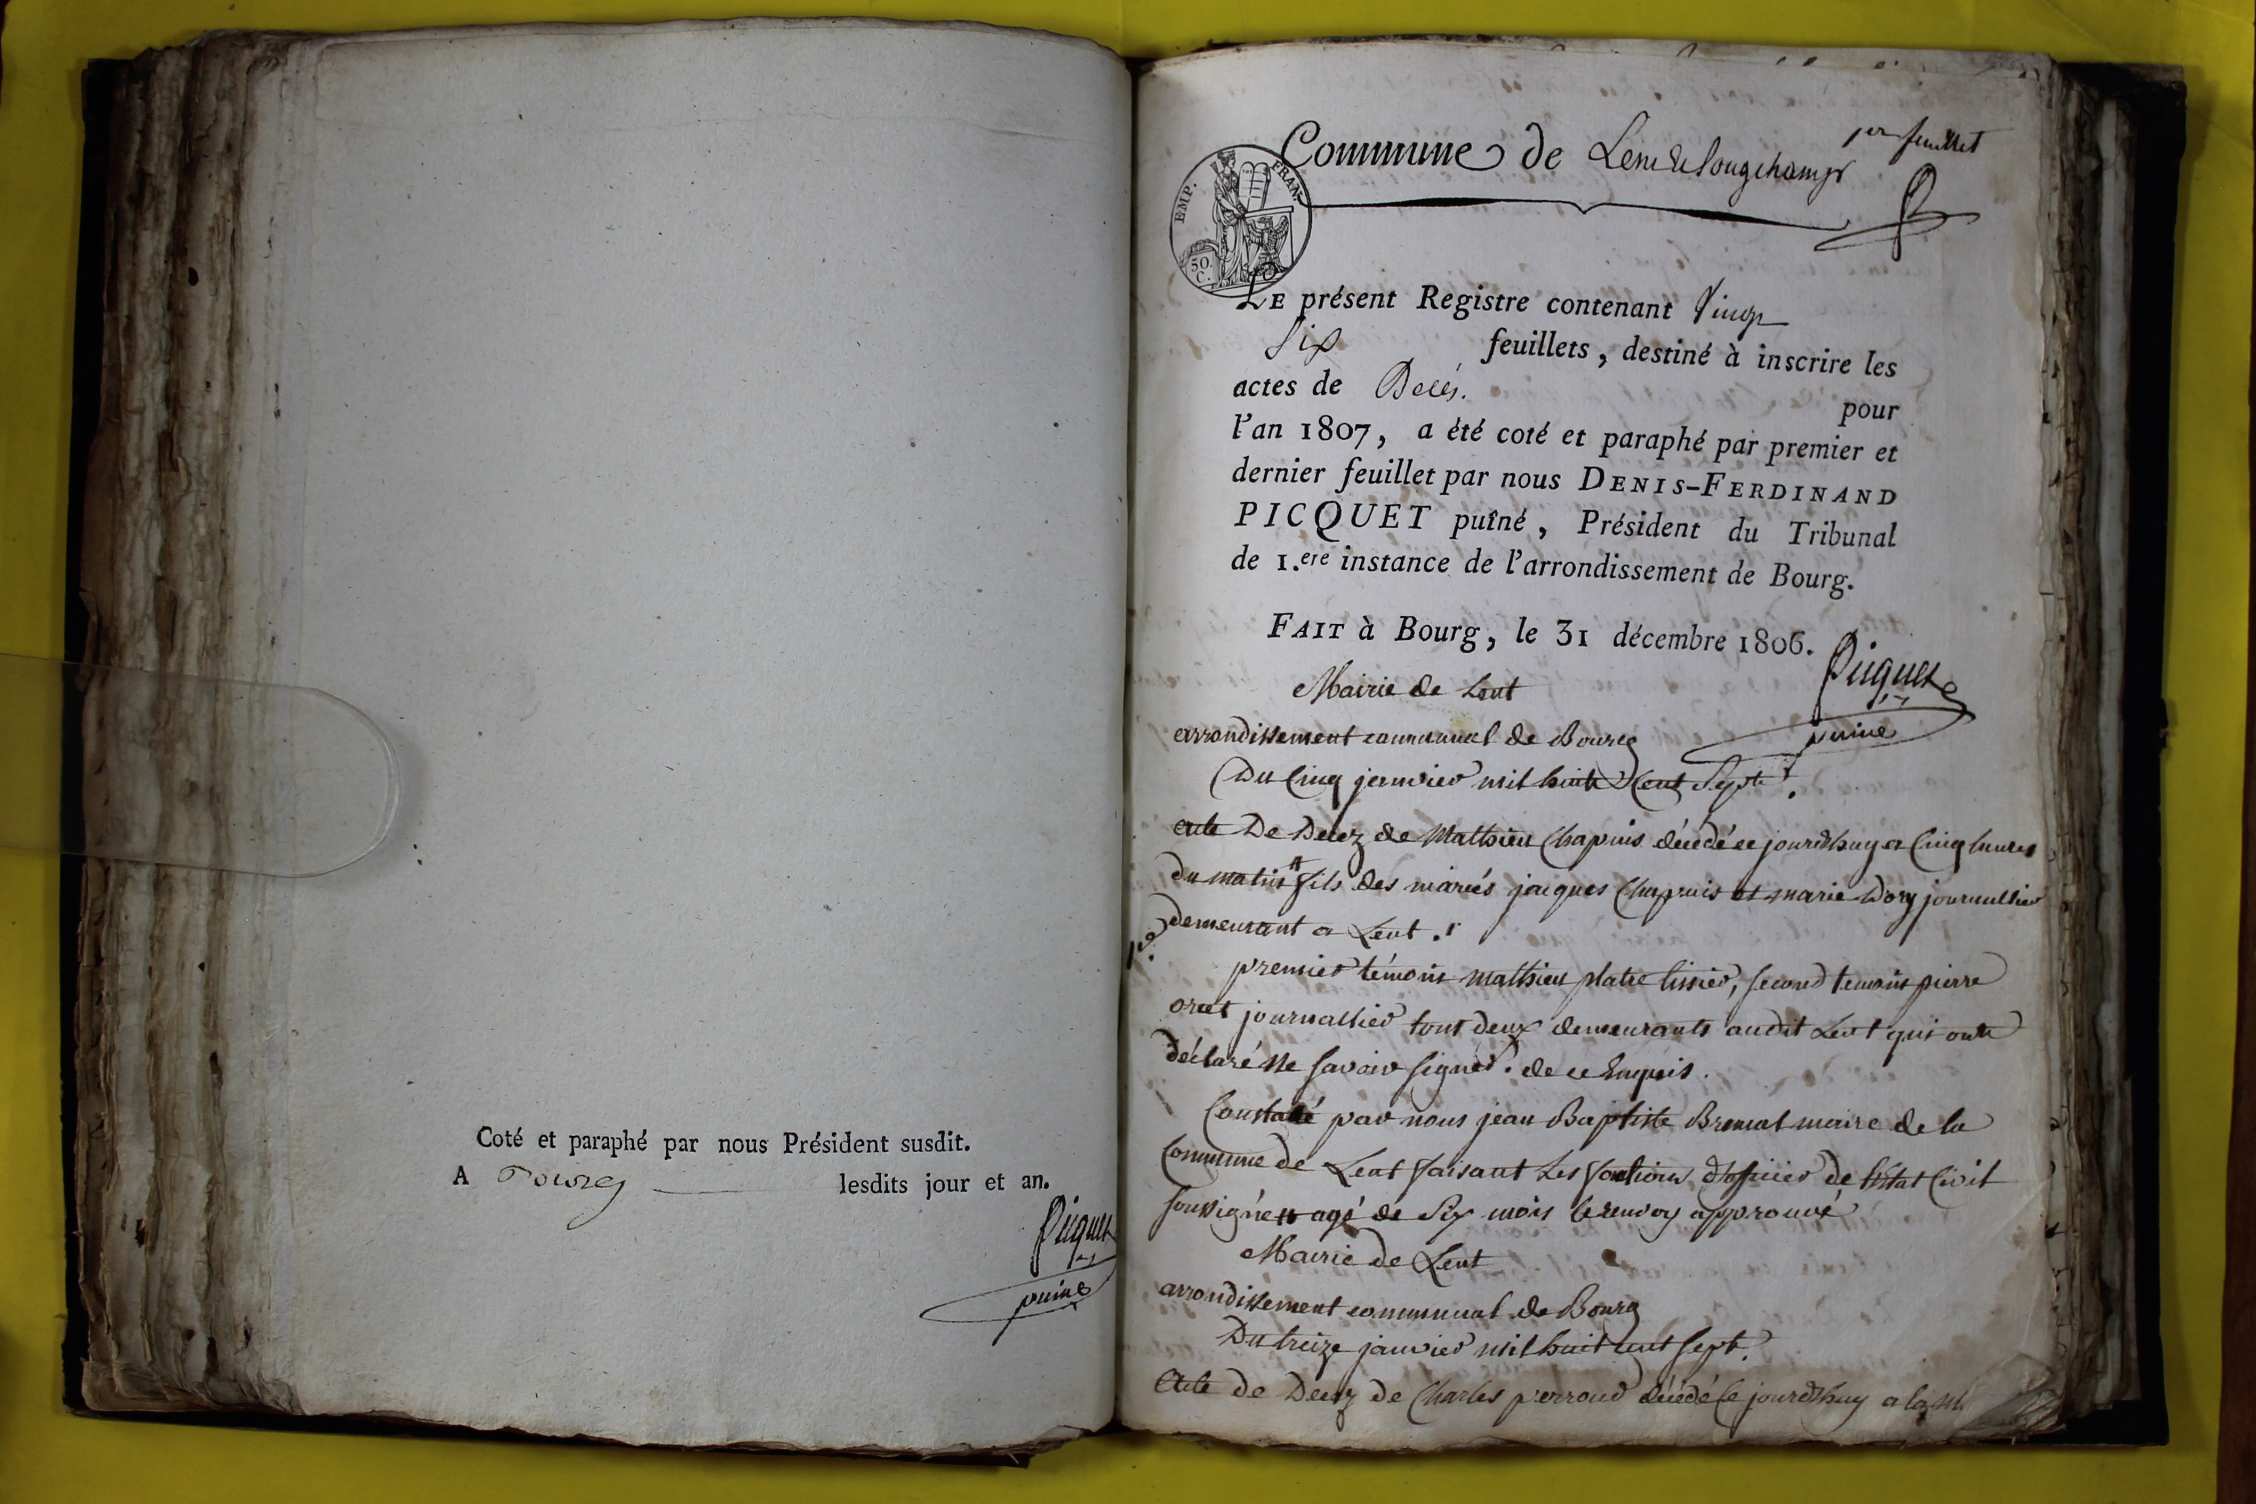 Coté et paraphé par nous Président susdit.
A Bourg lesdits jour et an.
Picquet
puiné
1er feuillet
Commune de Lent & longchamps
EMP. FRAN.
50.
C.
LE présent Registre contenant Vingt
Six feuillets, destiné à inscrire les
actes de Decés. pour
l'an 1807, a été coté et paraphé par premier et
dernier feuillet par nous DENIS-FERDINAND
PICQUET puîné, Président du Tribunal
de 1.ere instance de l'arrondissement de Bourg.
FAIT à Bourg, le 31 décembre 1806.
Picquet
puiné
Mairie de Lent
arrondissement communal de Bourg
Du Cinq janvier mil huit Cent Sept.
acte De Decez de Mathieu Chapuis décédé ce jourdhuy a Cinq heures
du matin # fils des mariés jacques Chapuis et marie Dory journallier
demeurant a Lent.
premier témoin mathieu platre tissier, second temoin pierre
journallier tout deux demeurants audit Lent qui ont
déclaré ne savoir signer. de ce Enquis.
Constaté par nous jean Baptiste maire de la
Commune de Lent faisant Les fonctions d'officier de l'état Civil
soussigné # agé de Six mois le renvoy approuvé
Mairie de Lent
arrondissement communal de Bourg
Du treize janvier mil huit cent sept.
Acte de Decez de Charles perroud décédé Ce jourdhuy